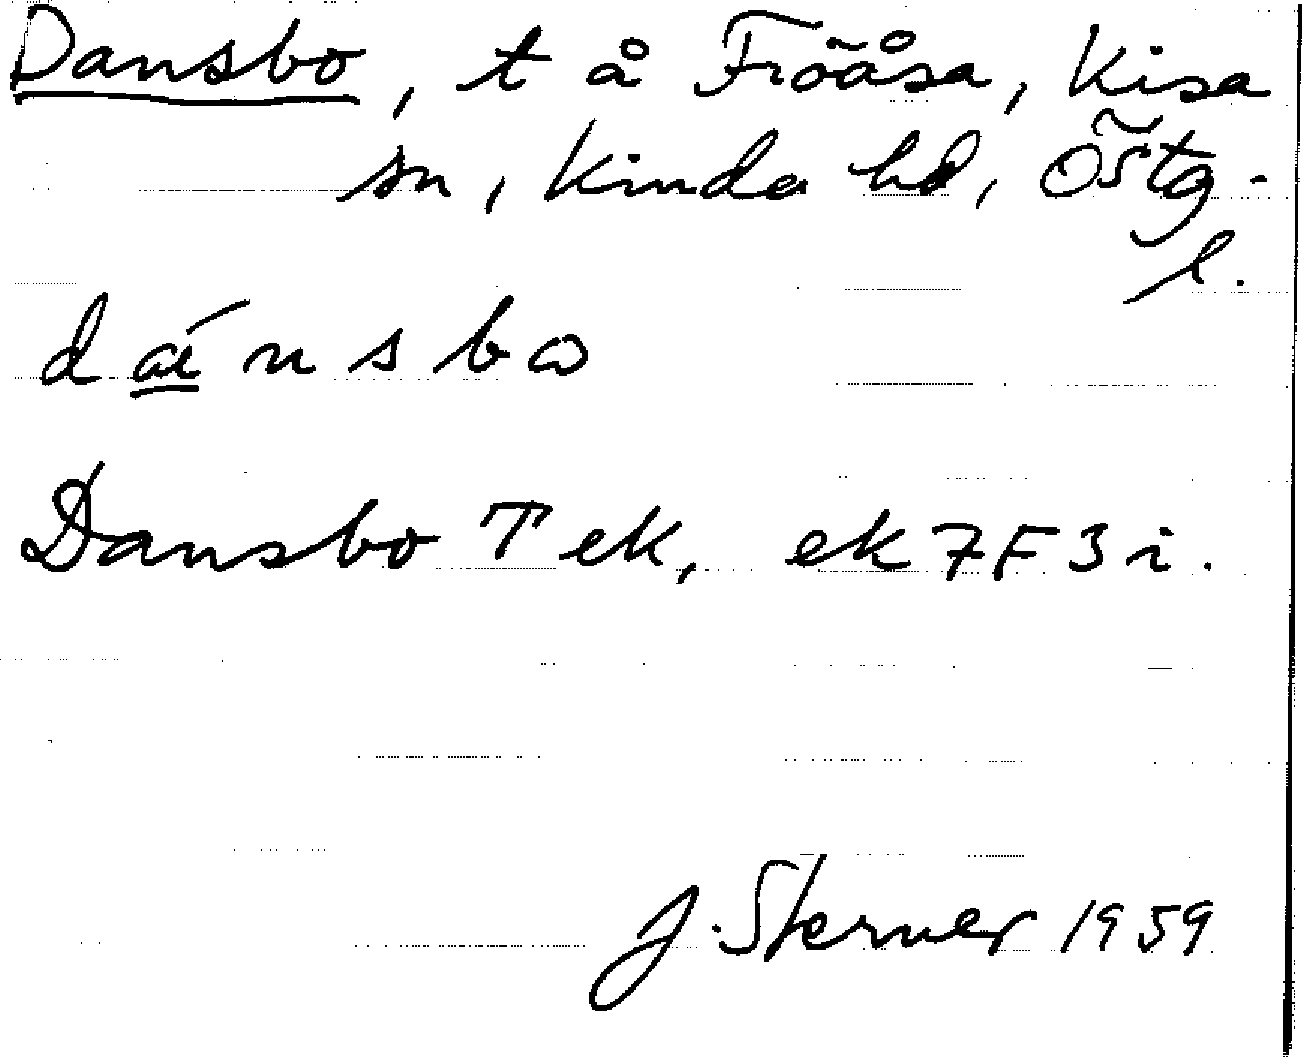 Dansbo, t å Fröåsa, Kisa
sn, Kinda hd, Östg.
l.
dánsbω
Dansbo T ek, ek 7F3i.
J. Sterner 1959